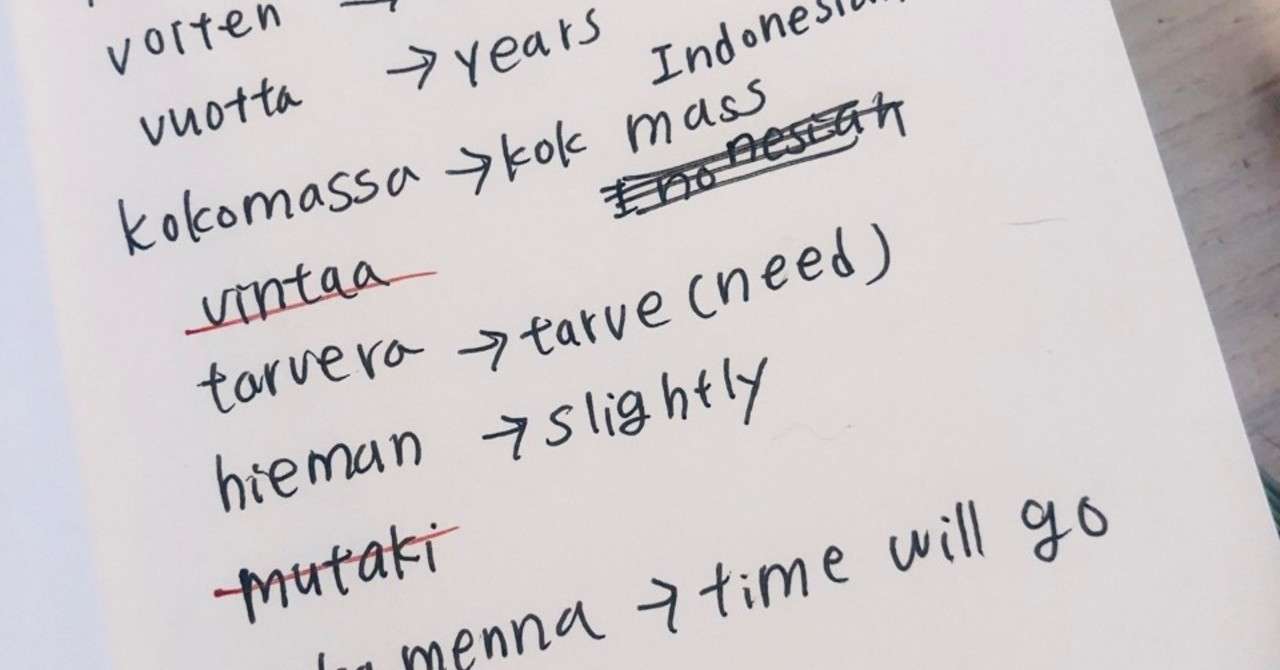 vorten →
vuotta → years
Indonesian
kokomassa → kok mass
vintaa
tarvera → tarve (need)
hieman → slightly
mutaki
menna → time will go